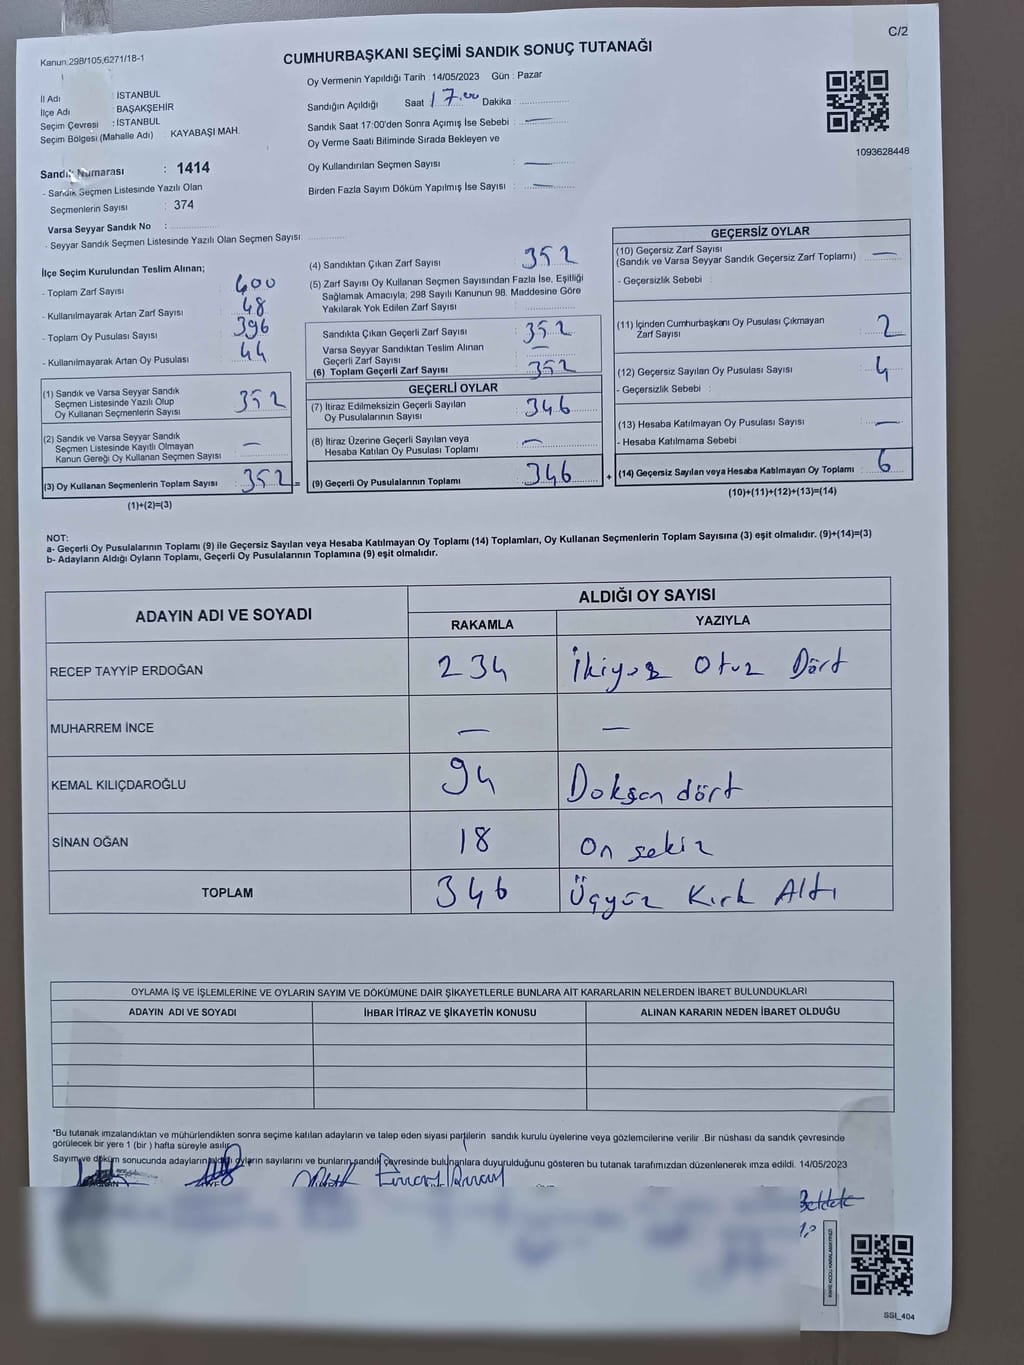 Kanun:298/105,6271/18-1
CUMHURBAŞKANI SEÇİMİ SANDIK SONUÇ TUTANAĞI
C/2
Oy Vermenin Yapıldığı Tarih : 14/05/2023 Gün : Pazar
İl Adı : İSTANBUL
İlçe Adı : BAŞAKŞEHİR
Seçim Çevresi : İSTANBUL
Seçim Bölgesi (Mahalle Adı) : KAYABAŞI MAH.
Sandığın Açıldığı Saat 17.00 Dakika :
Sandık Saat 17:00'den Sonra Açımış İse Sebebi : —
Oy Verme Saati Bitiminde Sırada Bekleyen ve
Oy Kullandırılan Seçmen Sayısı : —
Birden Fazla Sayım Döküm Yapılmış İse Sayısı : —
1093628448
Sandık Numarası : 1414
- Sandık Seçmen Listesinde Yazılı Olan
Seçmenlerin Sayısı : 374
Varsa Seyyar Sandık No :
- Seyyar Sandık Seçmen Listesinde Yazılı Olan Seçmen Sayısı:
İlçe Seçim Kurulundan Teslim Alınan;
- Toplam Zarf Sayısı : 400
- Kullanılmayarak Artan Zarf Sayısı : 48
- Toplam Oy Pusulası Sayısı : 396
- Kullanılmayarak Artan Oy Pusulası : 44
(1) Sandık ve Varsa Seyyar Sandık
Seçmen Listesinde Yazılı Olup
Oy Kullanan Seçmenlerin Sayısı : 352
(2) Sandık ve Varsa Seyyar Sandık
Seçmen Listesinde Kayıtlı Olmayan
Kanun Gereği Oy Kullanan Seçmen Sayısı : —
(3) Oy Kullanan Seçmenlerin Toplam Sayısı : 352 =
(1)+(2)=(3)
(4) Sandıktan Çıkan Zarf Sayısı : 352
(5) Zarf Sayısı Oy Kullanan Seçmen Sayısından Fazla İse, Eşitliği
Sağlamak Amacıyla; 298 Sayılı Kanunun 98. Maddesine Göre
Yakılarak Yok Edilen Zarf Sayısı :
Sandıkta Çıkan Geçerli Zarf Sayısı : 352
Varsa Seyyar Sandıktan Teslim Alınan
Geçerli Zarf Sayısı : —
(6) Toplam Geçerli Zarf Sayısı : 352
GEÇERLİ OYLAR
(7) İtiraz Edilmeksizin Geçerli Sayılan
Oy Pusulalarının Sayısı : 346
(8) İtiraz Üzerine Geçerli Sayılan veya
Hesaba Katılan Oy Pusulası Toplamı : —
(9) Geçerli Oy Pusulalarının Toplamı : 346 +
GEÇERSİZ OYLAR
(10) Geçersiz Zarf Sayısı
(Sandık ve Varsa Seyyar Sandık Geçersiz Zarf Toplamı) : —
- Geçersizlik Sebebi :
(11) İçinden Cumhurbaşkanı Oy Pusulası Çıkmayan
Zarf Sayısı : 2
(12) Geçersiz Sayılan Oy Pusulası Sayısı : 4
- Geçersizlik Sebebi :
(13) Hesaba Katılmayan Oy Pusulası Sayısı : —
- Hesaba Katılmama Sebebi :
(14) Geçersiz Sayılan veya Hesaba Katılmayan Oy Toplamı : 6
(10)+(11)+(12)+(13)=(14)
NOT:
a- Geçerli Oy Pusulalarının Toplamı (9) ile Geçersiz Sayılan veya Hesaba Katılmayan Oy Toplamı (14) Toplamları, Oy Kullanan Seçmenlerin Toplam Sayısına (3) eşit olmalıdır. (9)+(14)=(3)
b- Adayların Aldığı Oyların Toplamı, Geçerli Oy Pusulalarının Toplamına (9) eşit olmalıdır.
ADAYIN ADI VE SOYADI
ALDIĞI OY SAYISI
RAKAMLA YAZIYLA
RECEP TAYYİP ERDOĞAN 234 İkiyüz Otuz Dört
MUHARREM İNCE — —
KEMAL KILIÇDAROĞLU 94 Doksan dört
SİNAN OĞAN 18 On sekiz
TOPLAM 346 Üçyüz Kırk Altı
OYLAMA İŞ VE İŞLEMLERİNE VE OYLARIN SAYIM VE DÖKÜMÜNE DAİR ŞİKAYETLERLE BUNLARA AİT KARARLARIN NELERDEN İBARET BULUNDUKLARI
ADAYIN ADI VE SOYADI İHBAR İTİRAZ VE ŞİKAYETİN KONUSU ALINAN KARARIN NEDEN İBARET OLDUĞU
*Bu tutanak imzalandıktan ve mühürlendikten sonra seçime katılan adayların ve talep eden siyasi partilerin sandık kurulu üyelerine veya gözlemcilerine verilir .Bir nüshası da sandık çevresinde
görülecek bir yere 1 (bir ) hafta süreyle asılır.
Sayım ve döküm sonucunda adayların aldığı oyların sayılarını ve bunların sandık çevresinde bulunanlara duyurulduğunu gösteren bu tutanak tarafımızdan düzenlenerek imza edildi. 14/05/2023
SSI_404